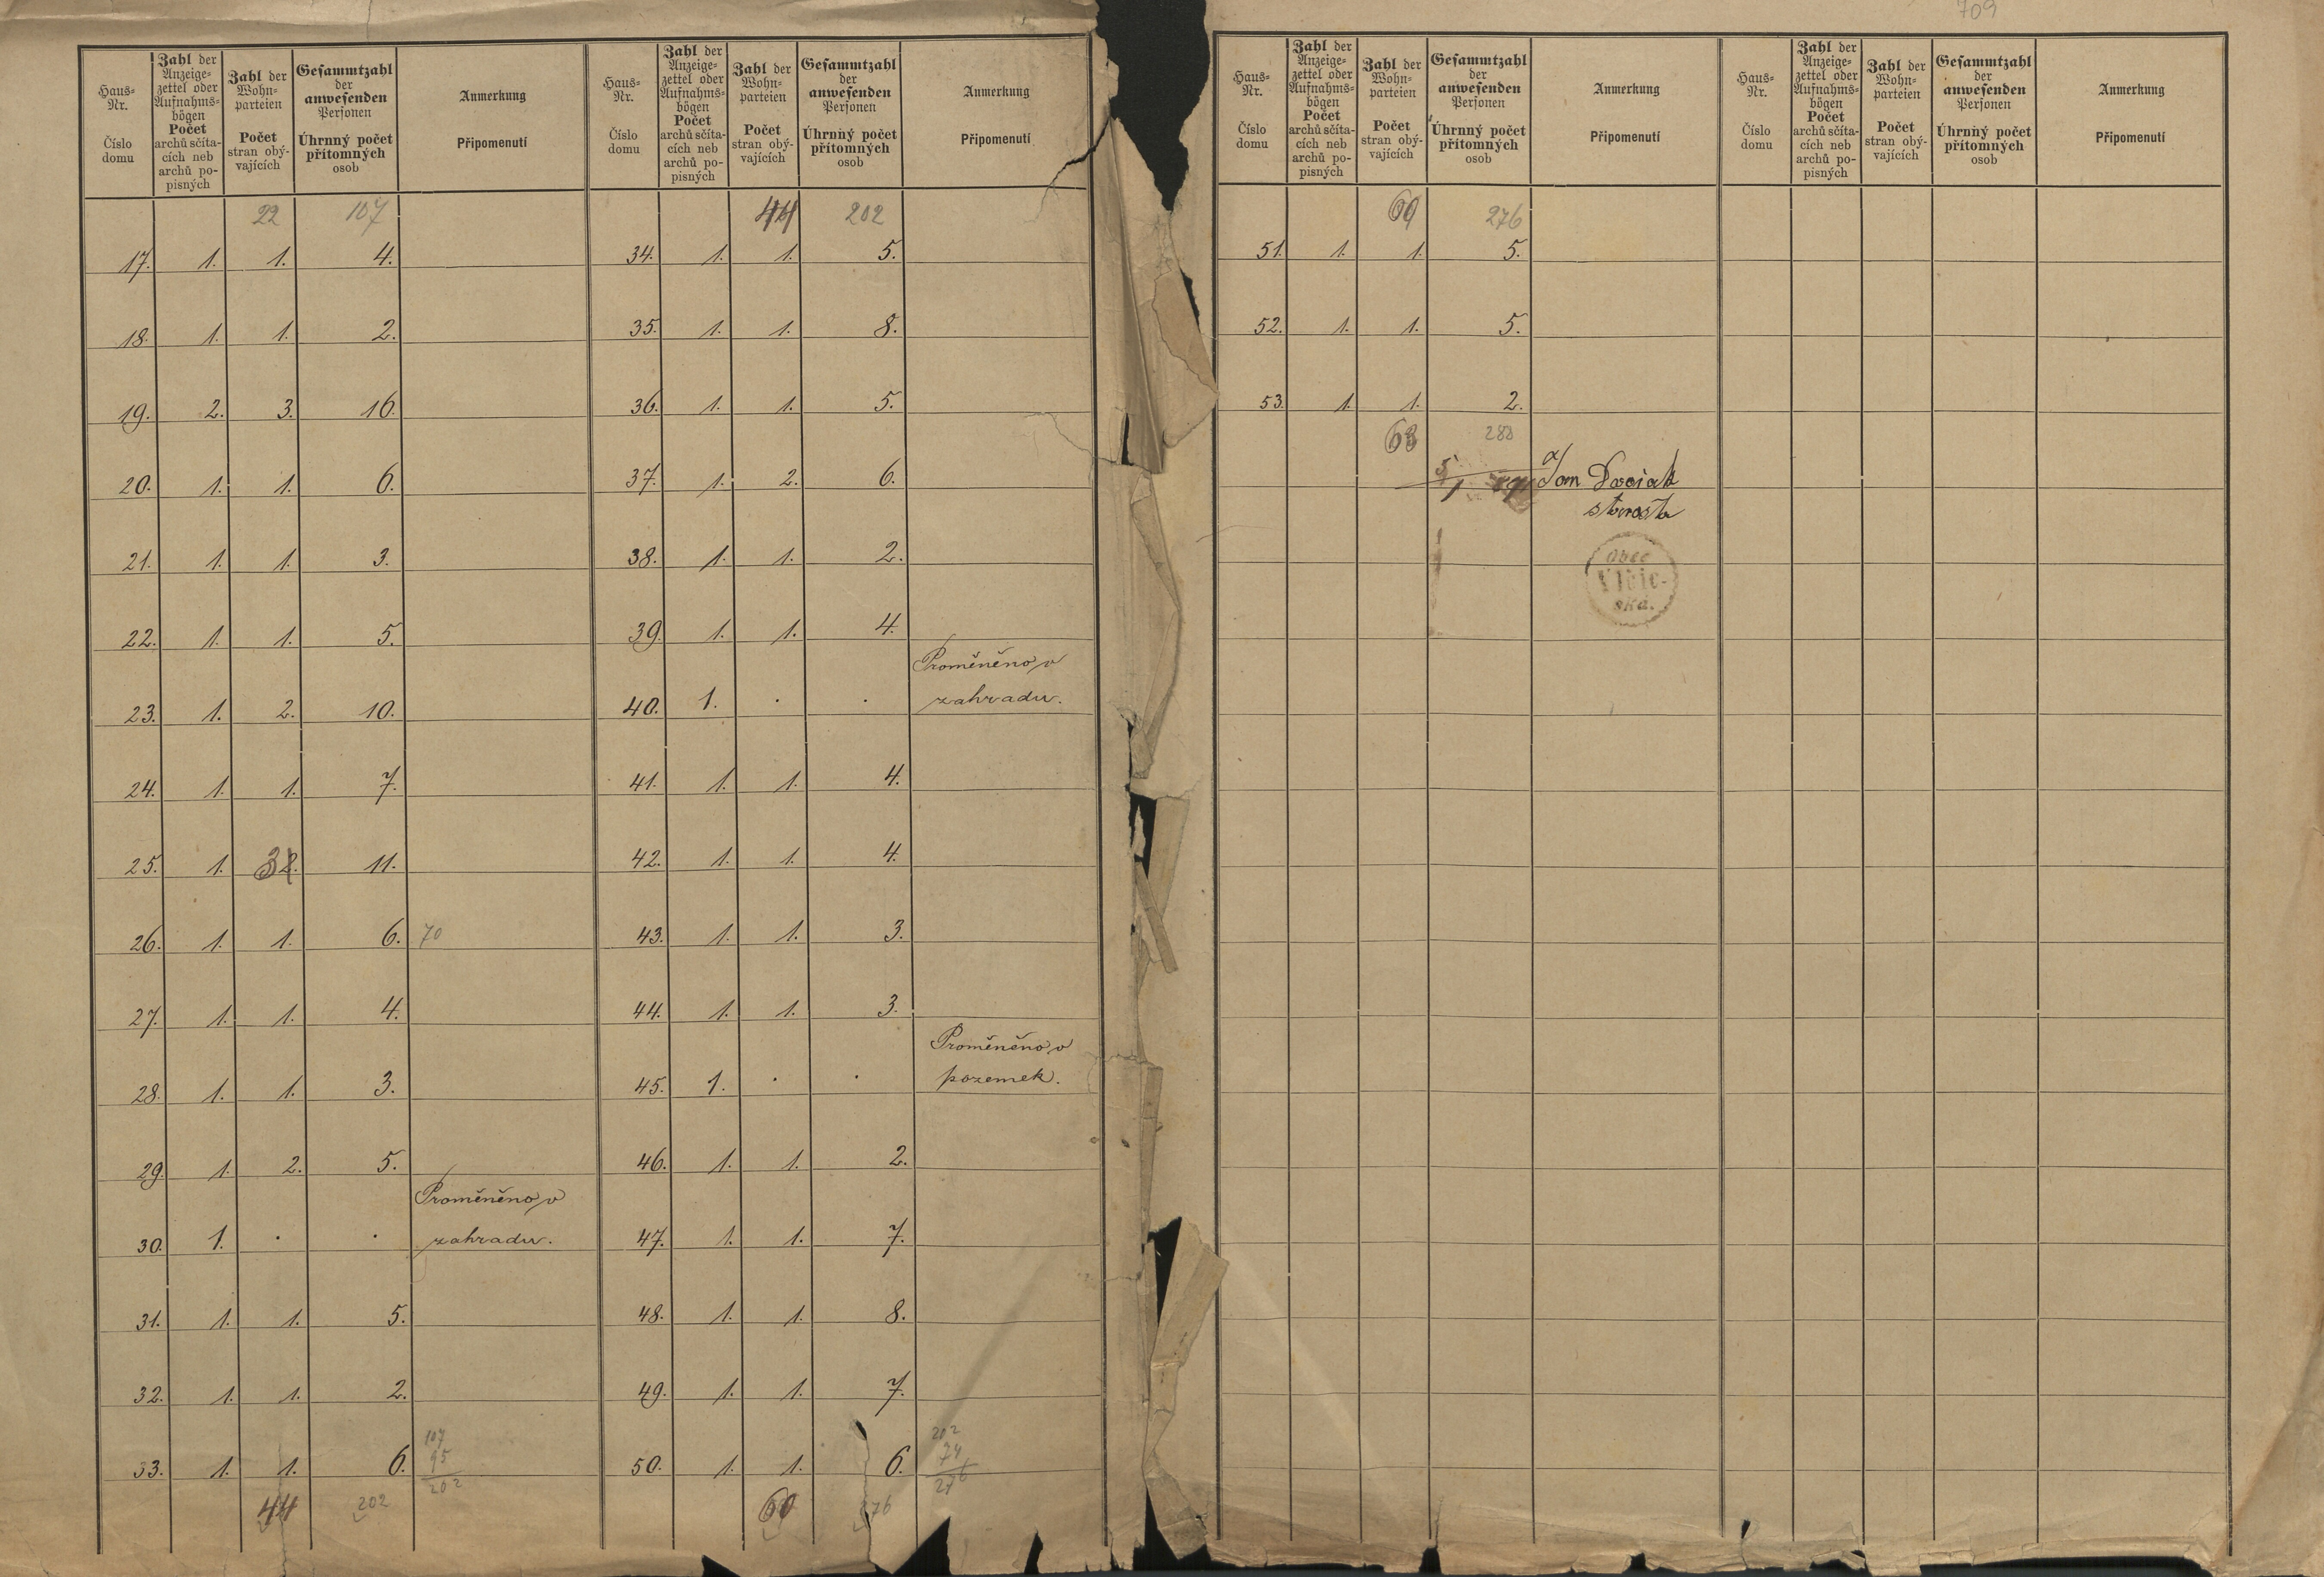 709
Haus-Nr. Číslo domu | Zahl der Anzeige-zettel oder Aufnahms-bögen Počet archů sčíta-cích neb archů po-pisných | Zahl der Wohn-parteien Počet stran obý-vajících | Gesammtzahl der anwesenden Personen Úhrnný počet přítomných osob | Anmerkung Připomenutí
22 107
17. 1. 1. 4.
18. 1. 1. 2.
19. 2. 3. 16.
20. 1. 1. 6.
21. 1. 1. 3.
22. 1. 1. 5.
23. 1. 2. 10.
24. 1. 1. 7.
25. 1. 3 2. 11.
26. 1. 1. 6. 70
27. 1. 1. 4.
28. 1. 1. 3.
29. 1. 2. 5.
30. 1. . . Proměněno v
zahradu.
31. 1. 1. 5.
32. 1. 1. 2.
33. 1. 1. 6.
107
95
202
44 202
Haus-Nr. Číslo domu | Zahl der Anzeige-zettel oder Aufnahms-bögen Počet archů sčíta-cích neb archů po-pisných | Zahl der Wohn-parteien Počet stran obý-vajících | Gesammtzahl der anwesenden Personen Úhrnný počet přítomných osob | Anmerkung Připomenutí
44 202
34. 1. 1. 5.
35. 1. 1. 8.
36. 1. 1. 5.
37. 1. 2. 6.
38. 1. 1. 2.
39. 1. 1. 4.
40. 1. . . Proměněno v
zahradu.
41. 1. 1. 4.
42. 1. 1. 4.
43. 1. 1. 3.
44. 1. 1. 3.
45. 1. . . Proměněno v
pozemek.
46. 1. 1. 2.
47. 1. 1. 7.
48. 1. 1. 8.
49. 1. 1. 7.
50. 1. 1. 6.
202
74
276
60 276
Haus-Nr. Číslo domu | Zahl der Anzeige-zettel oder Aufnahms-bögen Počet archů sčíta-cích neb archů po-pisných | Zahl der Wohn-parteien Počet stran obý-vajících | Gesammtzahl der anwesenden Personen Úhrnný počet přítomných osob | Anmerkung Připomenutí
60 276
51. 1. 1. 5.
52. 1. 1. 5.
53. 1. 1. 2.
63 288
Jan
starosta
Obec
ská.
Haus-Nr. Číslo domu | Zahl der Anzeige-zettel oder Aufnahms-bögen Počet archů sčíta-cích neb archů po-pisných | Zahl der Wohn-parteien Počet stran obý-vajících | Gesammtzahl der anwesenden Personen Úhrnný počet přítomných osob | Anmerkung Připomenutí